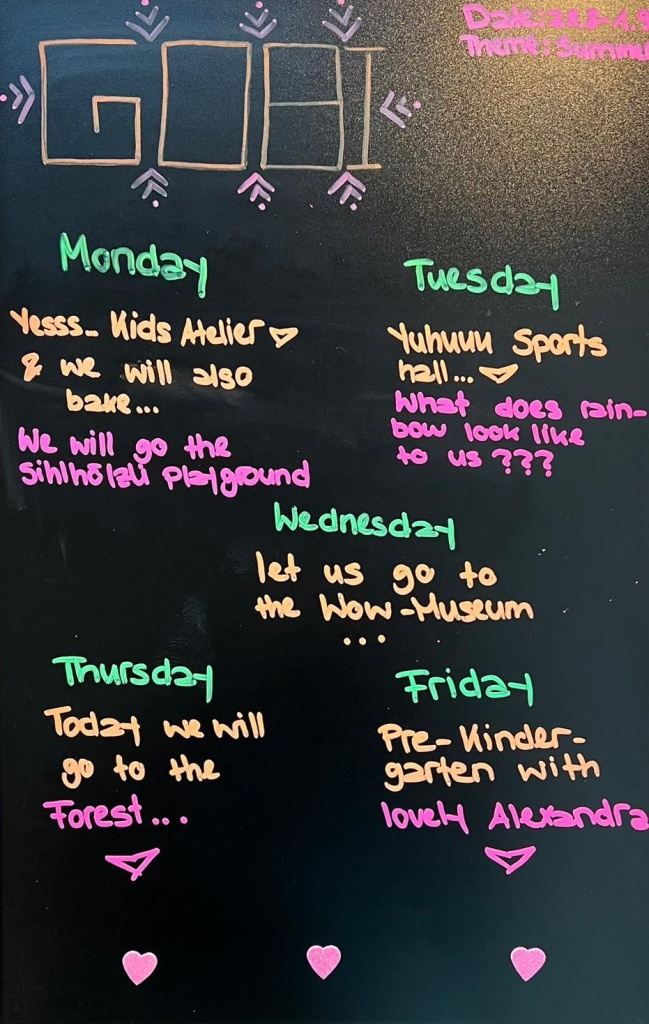 GOBI
Date: 28.8-1.9
Theme: Summer
Monday
Yesss.. Kids Atelier
& we will also
bake...
We will go the
Sihlhölzli Playground
Tuesday
Yuhuuu Sports
hall...
What does rain-
bow look like
to us ???
Wednesday
let us go to
the Wow-Museum
...
Thursday
Today we will
go to the
Forest...
Friday
Pre-Kinder-
garten with
lovely Alexandra